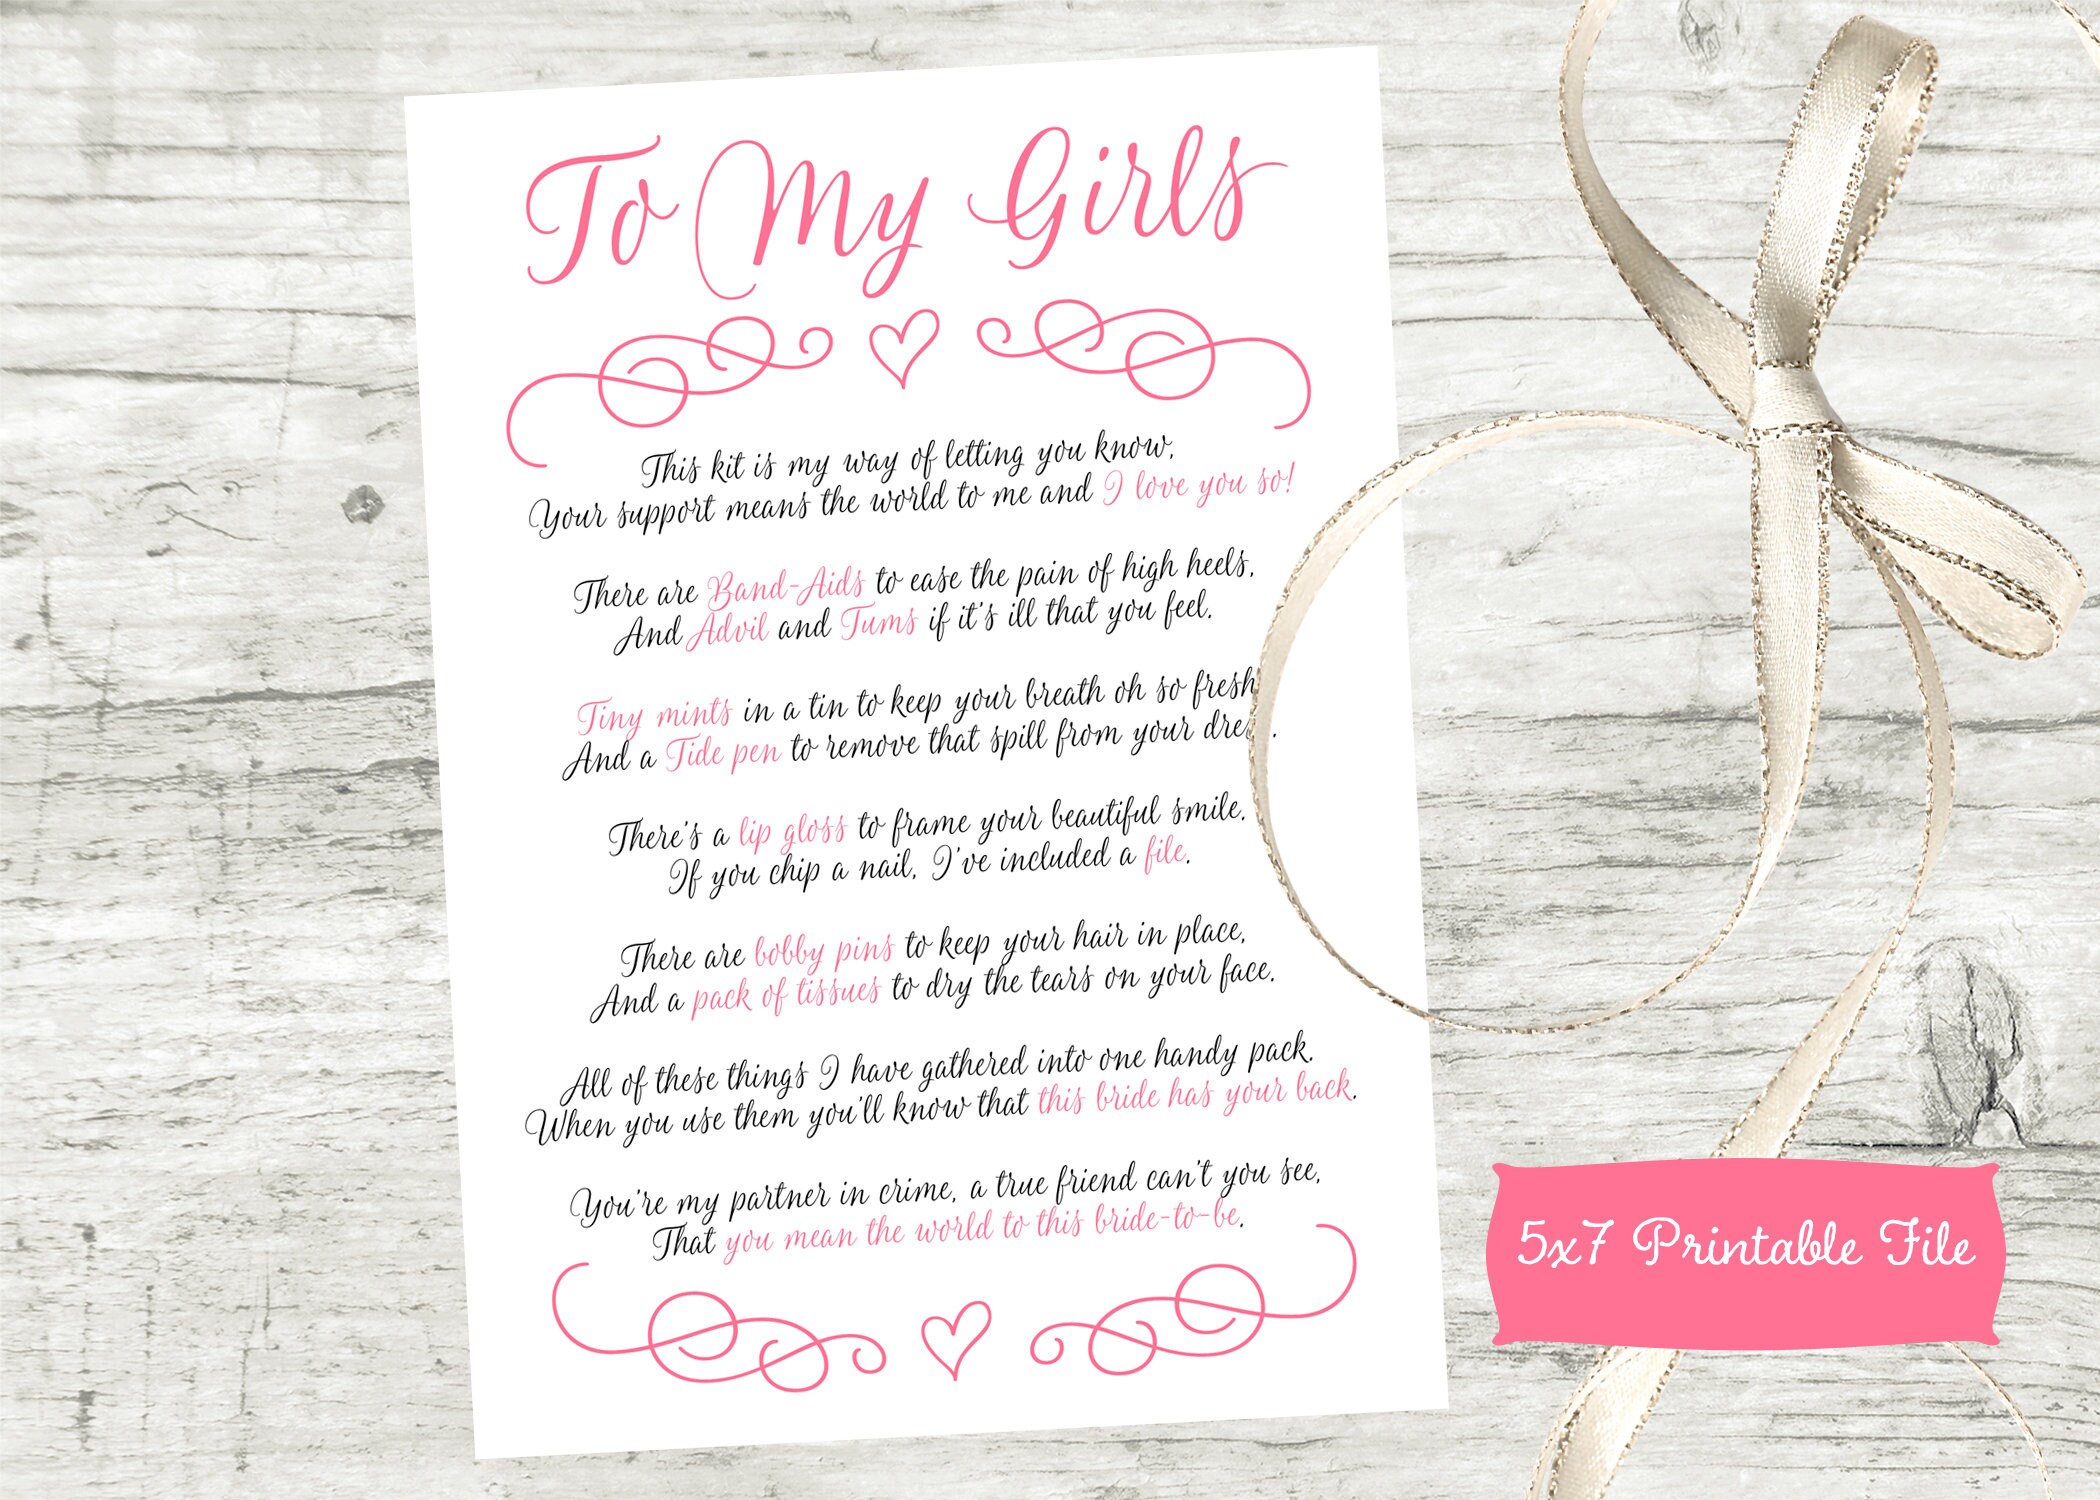 To My Girls
This kit is my way of letting you know,
Your support means the world to me and I love you so!
There are Band-Aids to ease the pain of high heels,
And Advil and Tums if it's ill that you feel.
Tiny mints in a tin to keep your breath oh so fresh
And a Tide pen to remove that spill from your
There's a lip gloss to frame your beautiful smile,
If you chip a nail, I've included a file.
There are bobby pins to keep your hair in place,
And a pack of tissues to dry the tears on your face.
All of these things I have gathered into one handy pack.
When you use them you'll know that this bride has your back.
You're my partner in crime, a true friend can't you see,
That you mean the world to this bride-to-be.
5x7 Printable File